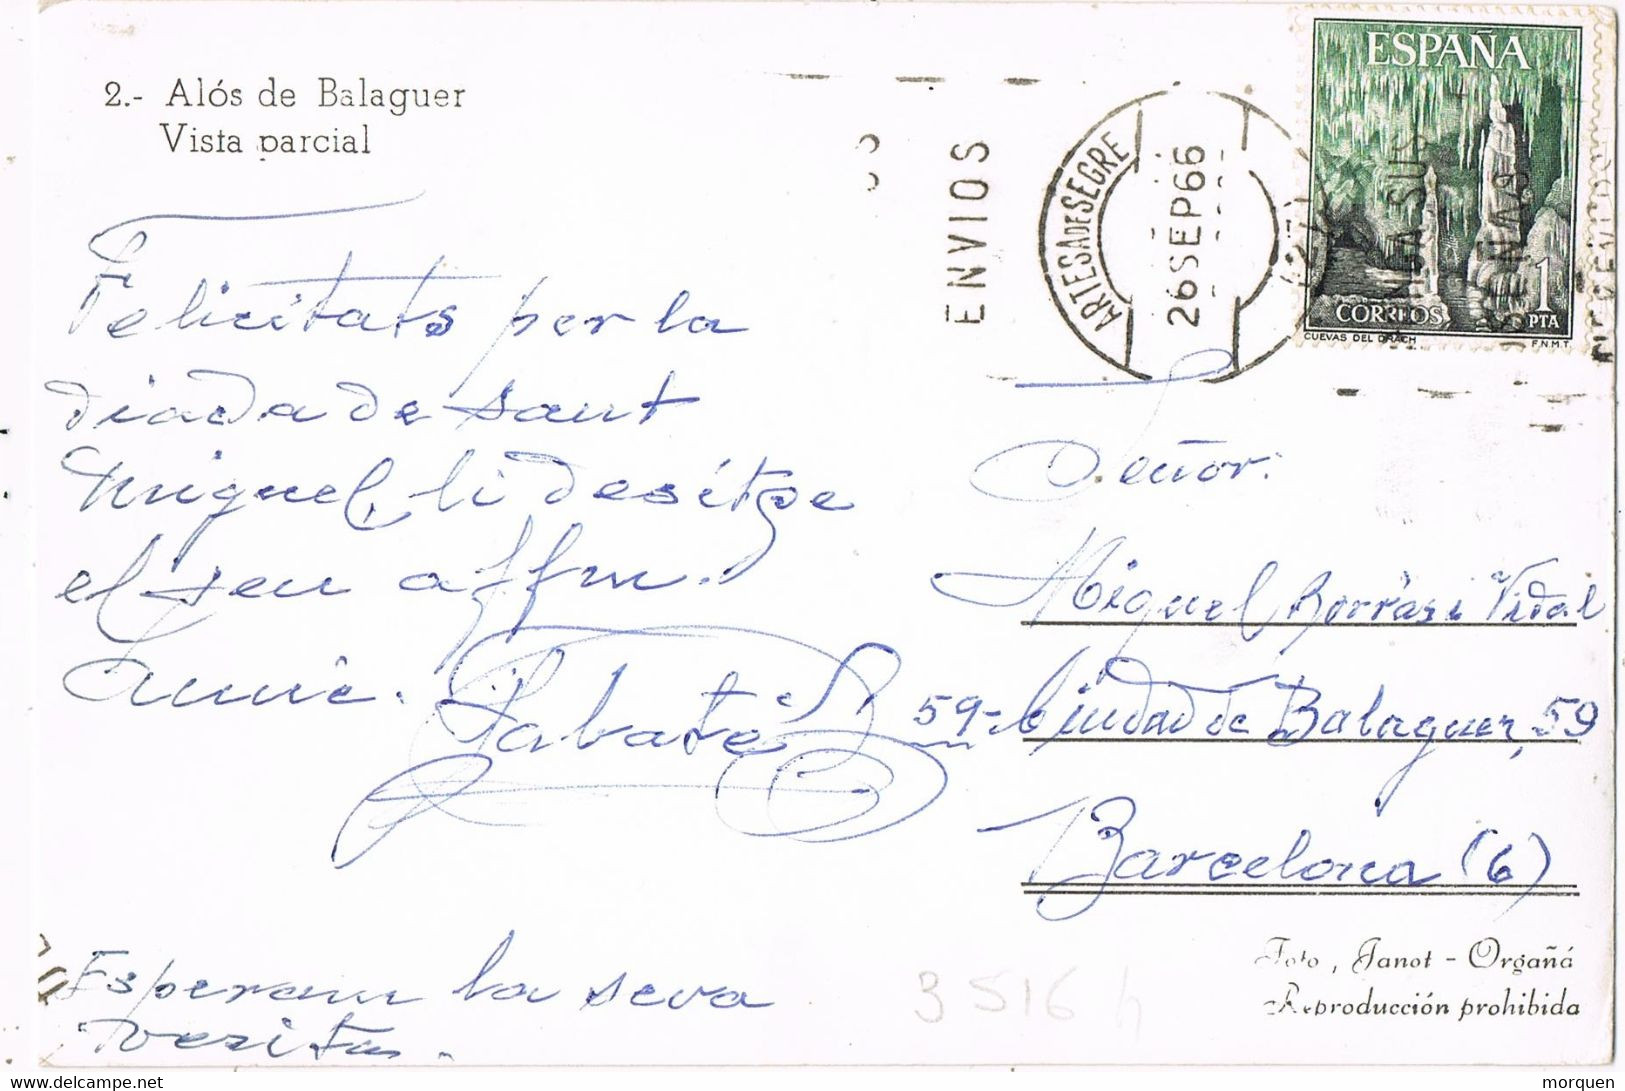 2.- Alós de Balaguer
Vista parcial
ESPAÑA
1
PTA
CORREOS
CUEVAS DEL DRACH
F.N.M.T.
ENVIOS
ARTESA DE SEGRE
26 SEP 66
EN SUS
SEÑAS
Felicitats per la
diada de sant
Miquel, li desitge
el seu affm.
amic.
Sabaté
Esperam la seva
vesita.
Señor:
Miguel Borràs i Vidal
59-Ciudad de Balaguer, 59
Barcelona (6)
Foto, Janot - Orgañá
Reproducción prohibida
3516
www.delcampe.net
morquen